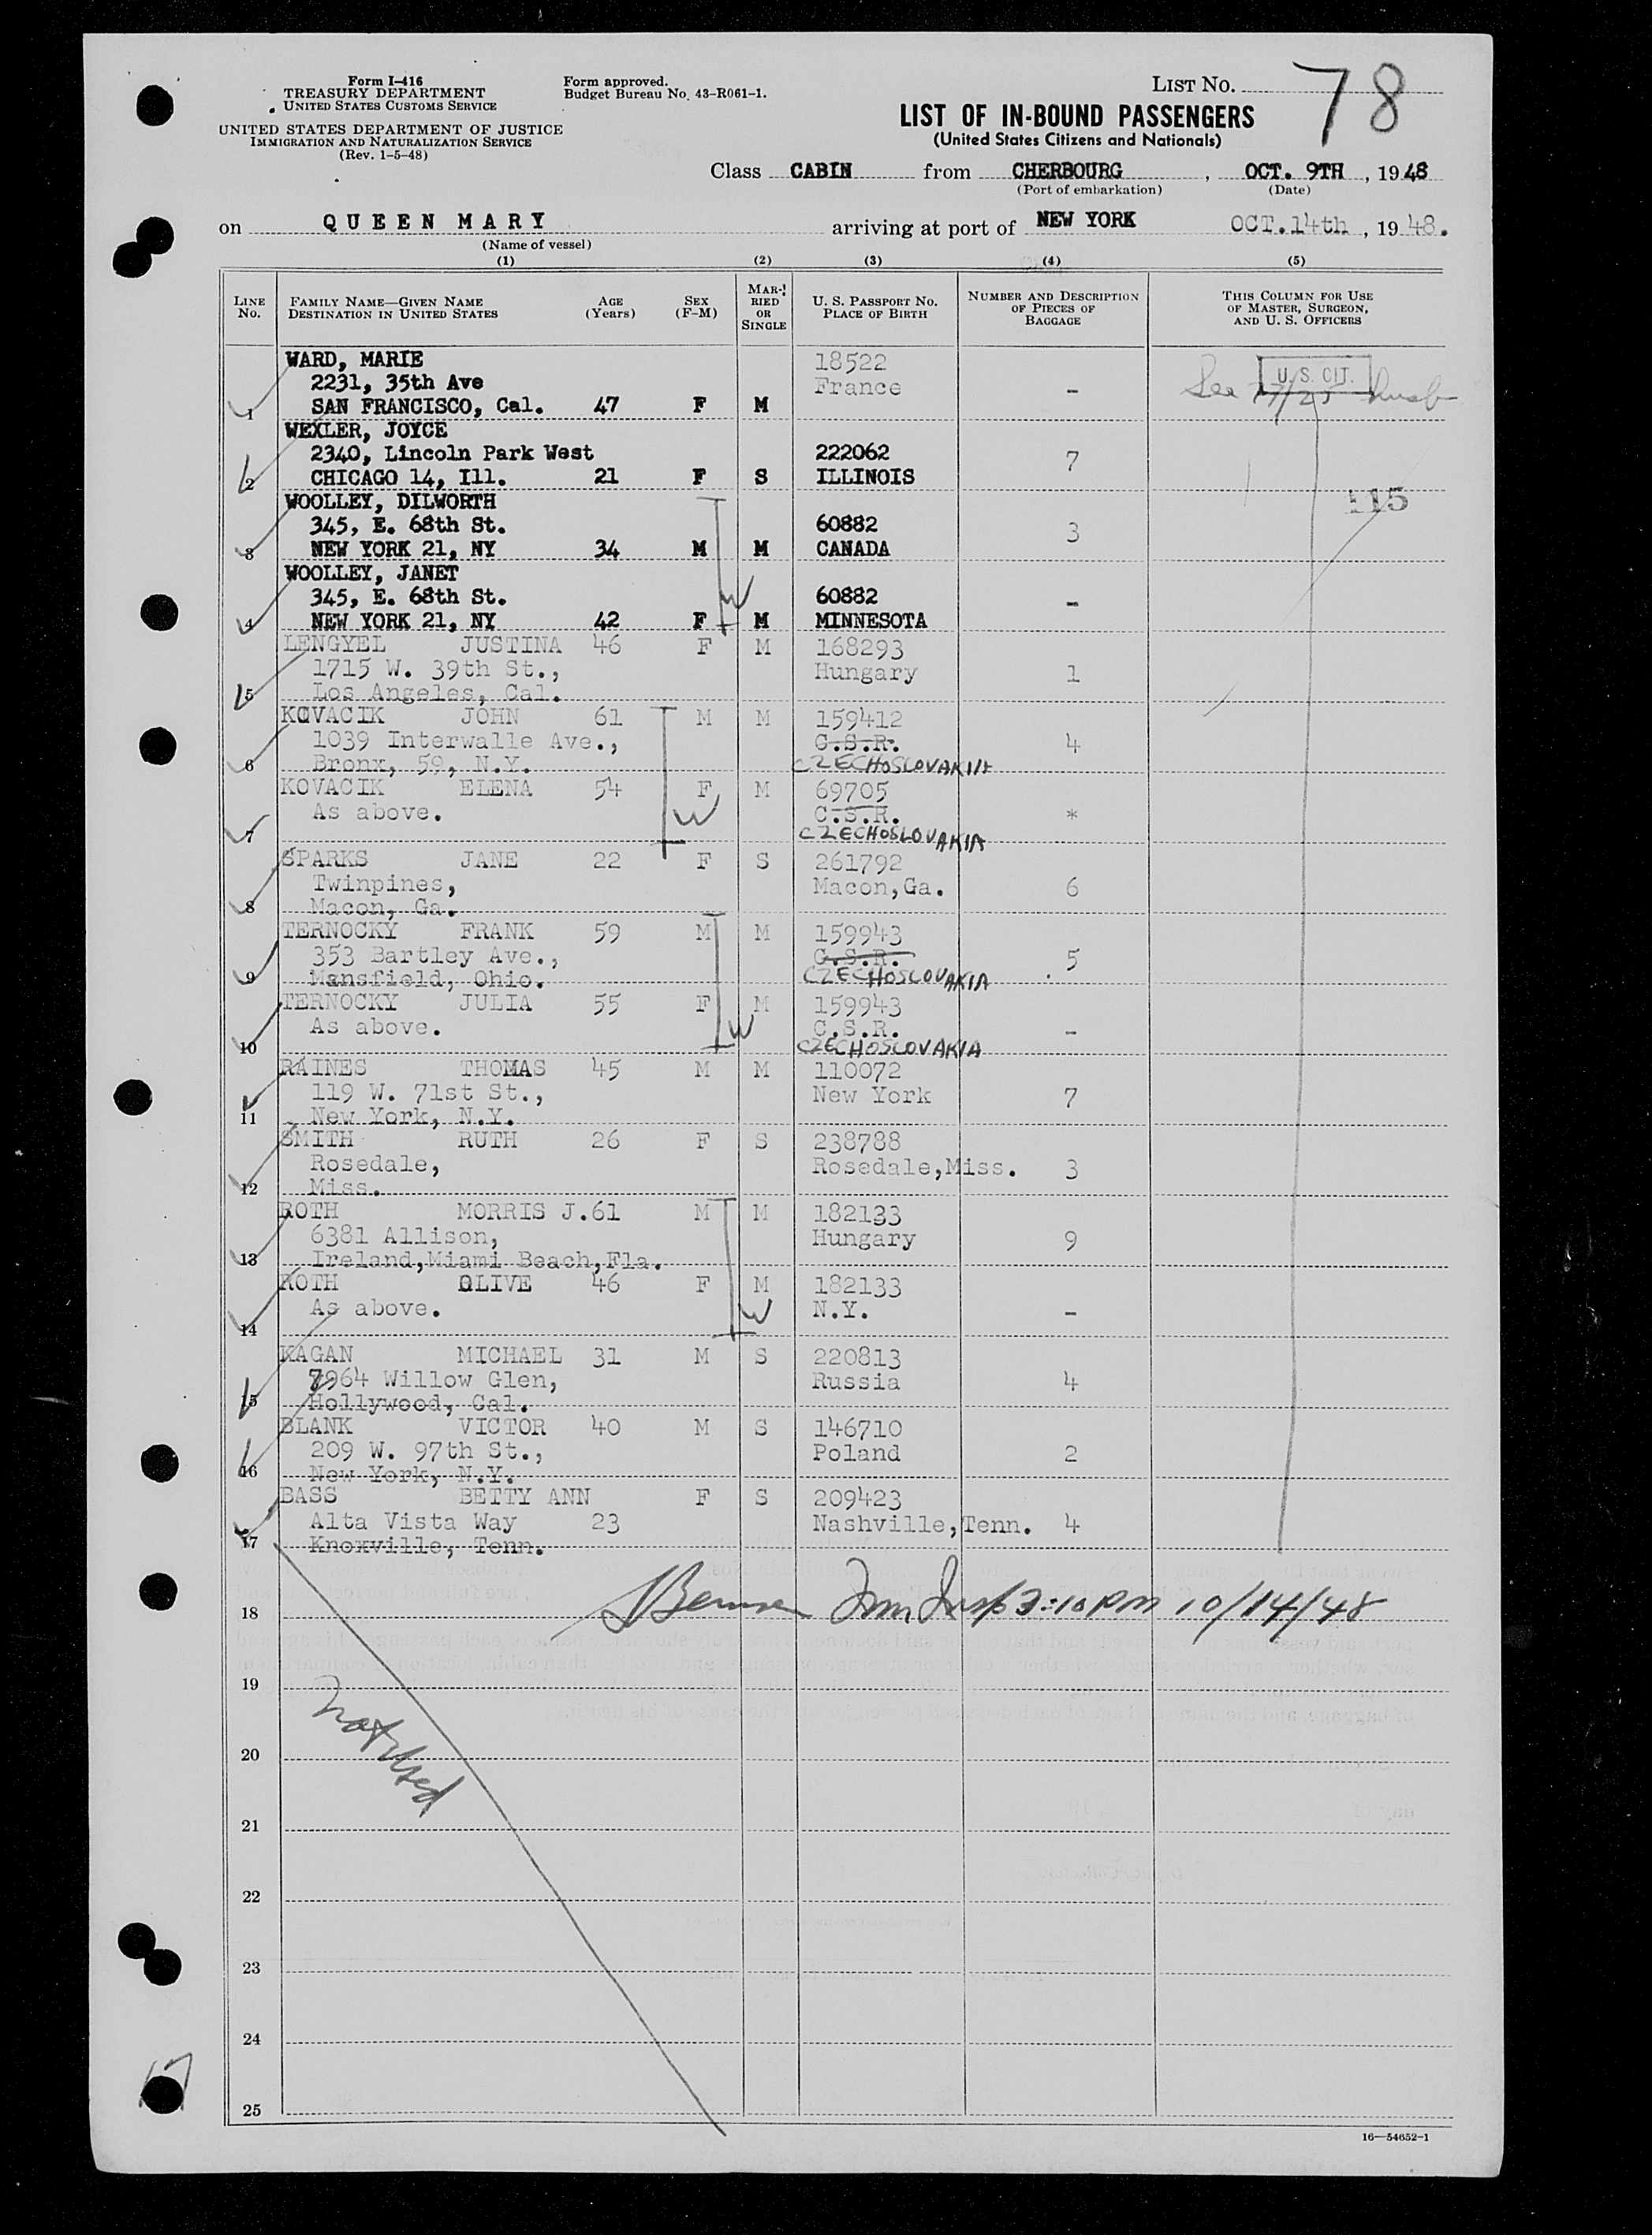 Form I-416
TREASURY DEPARTMENT
UNITED STATES CUSTOMS SERVICE
UNITED STATES DEPARTMENT OF JUSTICE
IMMIGRATION AND NATURALIZATION SERVICE
(Rev. 1-5-48)
Form approved.
Budget Bureau No. 43-R061-1.
LIST NO. 78
LIST OF IN-BOUND PASSENGERS
(United States Citizens and Nationals)
Class CABIN from CHERBOURG, OCT. 9TH, 1948
(Port of embarkation) (Date)
on QUEEN MARY arriving at port of NEW YORK OCT.14th, 1948.
(Name of vessel)
(1) (2) (3) (4) (5)
LINE No. FAMILY NAME—GIVEN NAME DESTINATION IN UNITED STATES AGE (Years) SEX (F-M) MARRIED OR SINGLE U. S. PASSPORT NO. PLACE OF BIRTH NUMBER AND DESCRIPTION OF PIECES OF BAGGAGE THIS COLUMN FOR USE OF MASTER, SURGEON, AND U. S. OFFICERS
WARD, MARIE 18522
2231, 35th Ave France - See 77/25 U.S. CIT.
1 SAN FRANCISCO, Cal. 47 F M
WEXLER, JOYCE
2340, Lincoln Park West 222062 7
2 CHICAGO 14, Ill. 21 F S ILLINOIS
WOOLLEY, DILWORTH 115
345, E. 68th St. 60882 3
3 NEW YORK 21, NY 34 M M CANADA
WOOLLEY, JANET
345, E. 68th St. 60882 -
4 NEW YORK 21, NY 42 F M MINNESOTA W
LENGYEL JUSTINA 46 F M 168293
1715 W. 39th St., Hungary 1
5 Los Angeles, Cal.
KOVACIK JOHN 61 M M 159412
1039 Interwalle Ave., C.S.R. 4
6 Bronx, 59, N.Y. CZECHOSLOVAKIA
KOVACIK ELENA 54 F M 69705
As above. W C.S.R. *
7 CZECHOSLOVAKIA
SPARKS JANE 22 F S 261792
Twinpines, Macon,Ga. 6
8 Macon, Ga.
TERNOCKY FRANK 59 M M 159943
353 Bartley Ave., C.S.R. 5
9 Mansfield, Ohio. CZECHOSLOVAKIA
TERNOCKY JULIA 55 F M 159943
As above. W C.S.R. -
10 CZECHOSLOVAKIA
RAINES THOMAS 45 M M 110072
119 W. 71st St., New York 7
11 New York, N.Y.
SMITH RUTH 26 F S 238788
Rosedale, Rosedale,Miss. 3
12 Miss.
ROTH MORRIS J. 61 M M 182133
6381 Allison, Hungary 9
13 Ireland,Miami Beach,Fla.
ROTH OLIVE 46 F M 182133
As above. W N.Y. -
14
KAGAN MICHAEL 31 M S 220813
7964 Willow Glen, Russia 4
15 Hollywood, Cal.
BLANK VICTOR 40 M S 146710
209 W. 97th St., Poland 2
16 New York, N.Y.
BASS BETTY ANN F S 209423
Alta Vista Way 23 Nashville,Tenn. 4
17 Knoxville, Tenn.
18 Imm Insp 3:10 PM 10/14/48
19
not used
20
21
22
23
24
17
25
16—54652-1